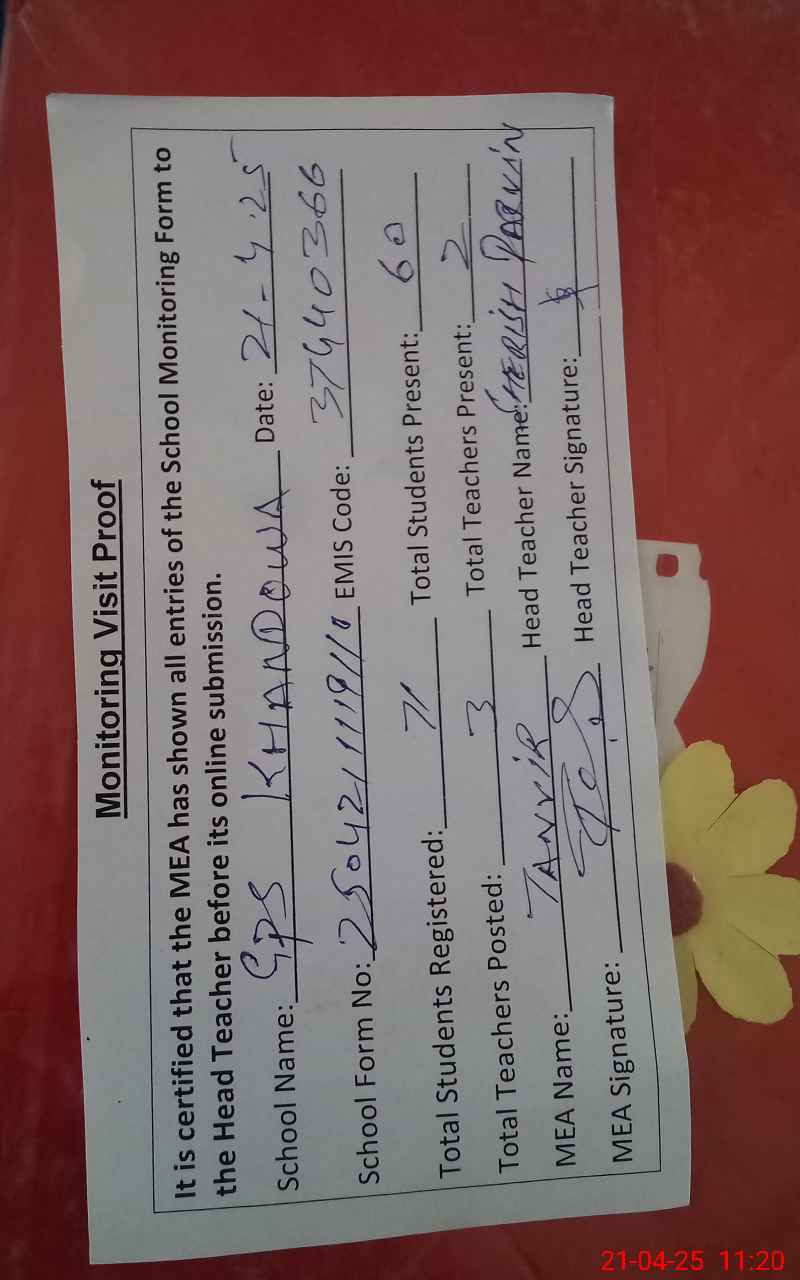 Monitoring Visit Proof
It is certified that the MEA has shown all entries of the School Monitoring Form to
the Head Teacher before its online submission.
School Name: GPS KHANDOWA Date: 21-4-25
School Form No: EMIS Code: 37440366
Total Students Registered: 71 Total Students Present: 60
Total Teachers Posted: 3 Total Teachers Present: 2
MEA Name: TANVIR Head Teacher Name: PARVIN
MEA Signature: Head Teacher Signature:
21-04-25 11:20